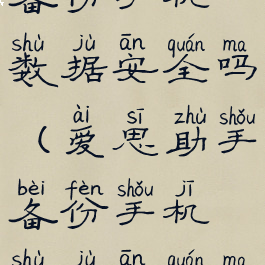 备份手机
shù jù ān quán ma
数据安全吗
ài sī zhù shǒu
（爱思助手
bèi fèn shǒu jī
备份手机
shù jù ān quán ma